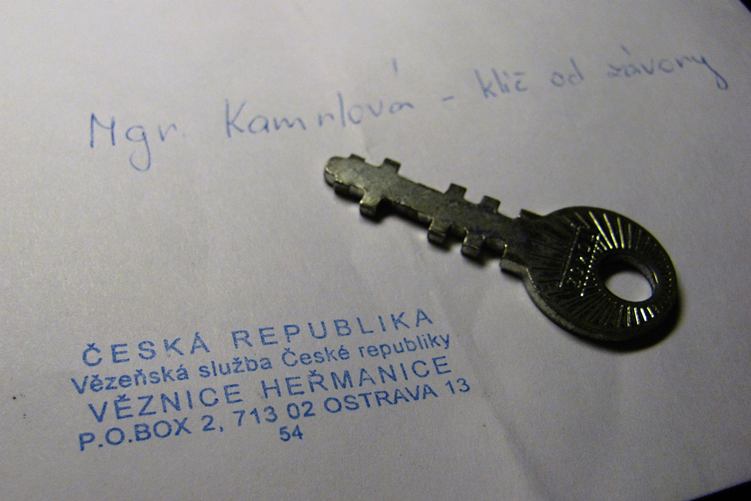 Mgr. Kamrlová - klíč od závory
ČESKÁ REPUBLIKA
Vězeňská služba České republiky
VĚZNICE HEŘMANICE
P.O.BOX 2, 713 02 OSTRAVA 13
54